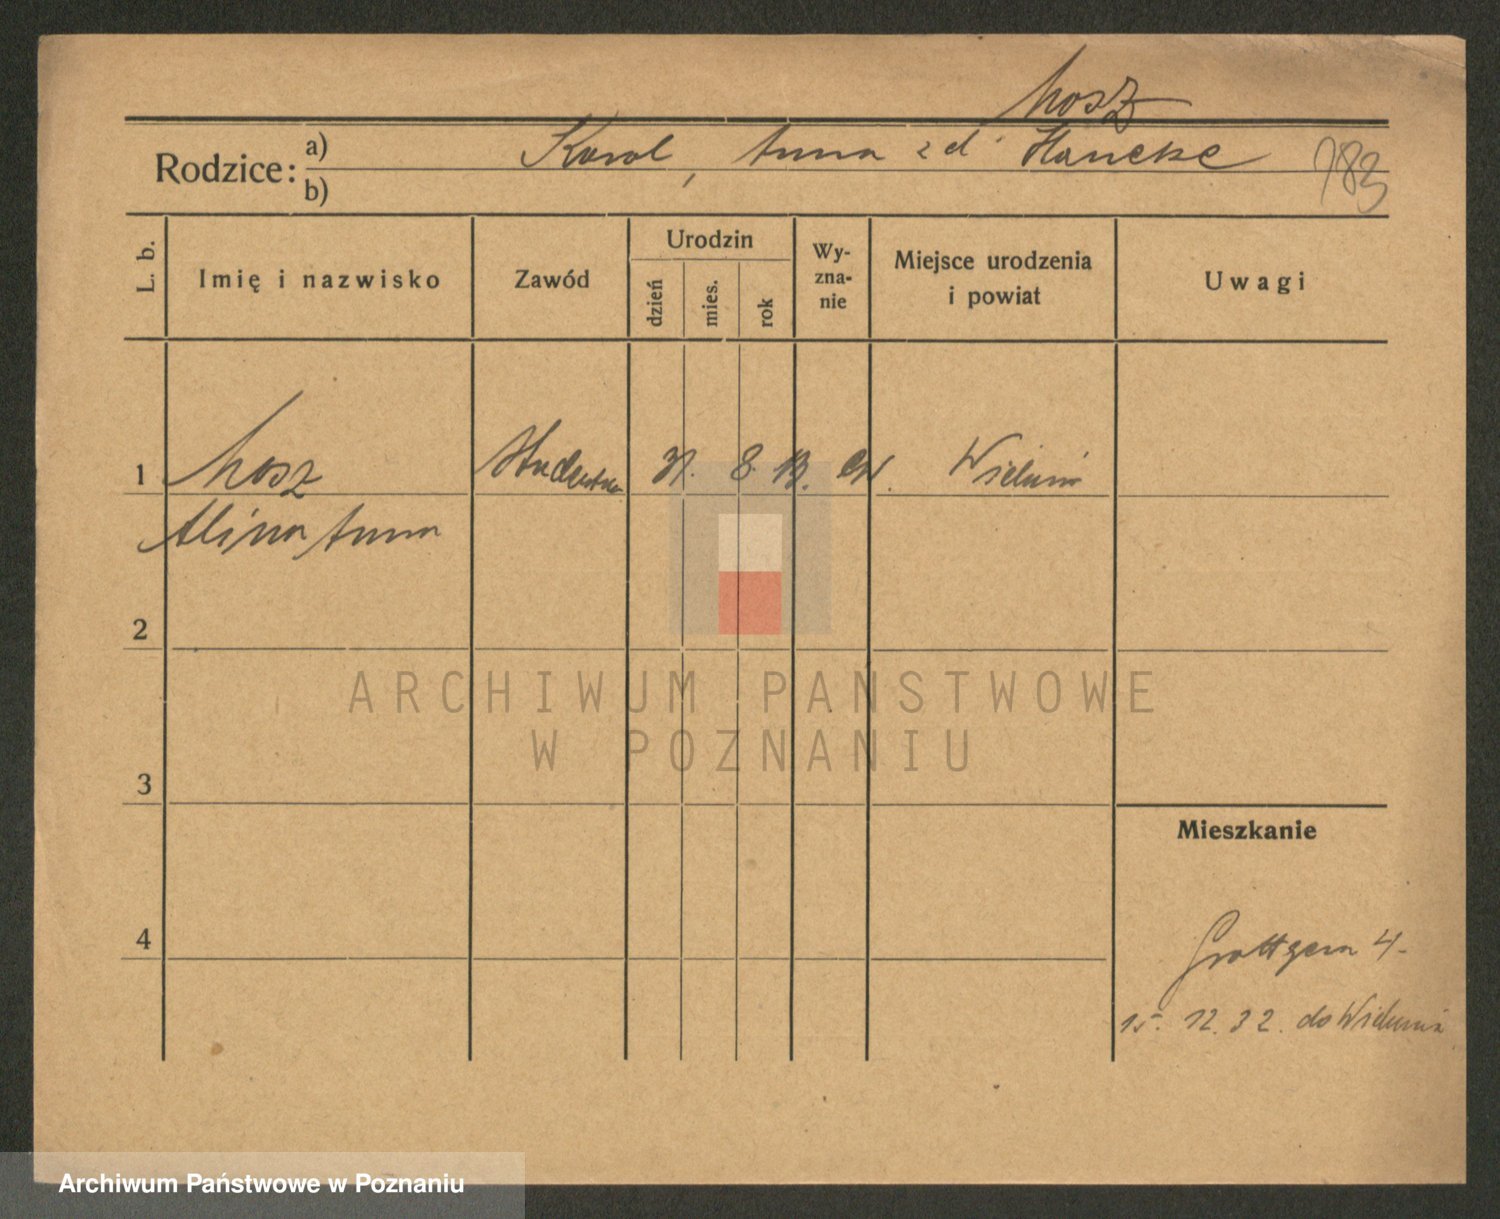 Mosz
Rodzice: a) Karol, Anna z d. Hancke
b)
183
L. b.
Imię i nazwisko
Zawód
Urodzin
dzień
mies.
rok
Wy-
zna-
nie
Miejsce urodzenia
i powiat
Uwagi
1 Mosz Studentka 31. 8. 13. ew. Wieluń
Alina Anna
2
ARCHIWUM PAŃSTWOWE
W POZNANIU
3
Mieszkanie
4
Grottgera 4
15. 12. 32. do Wielunia
Archiwum Państwowe w Poznaniu